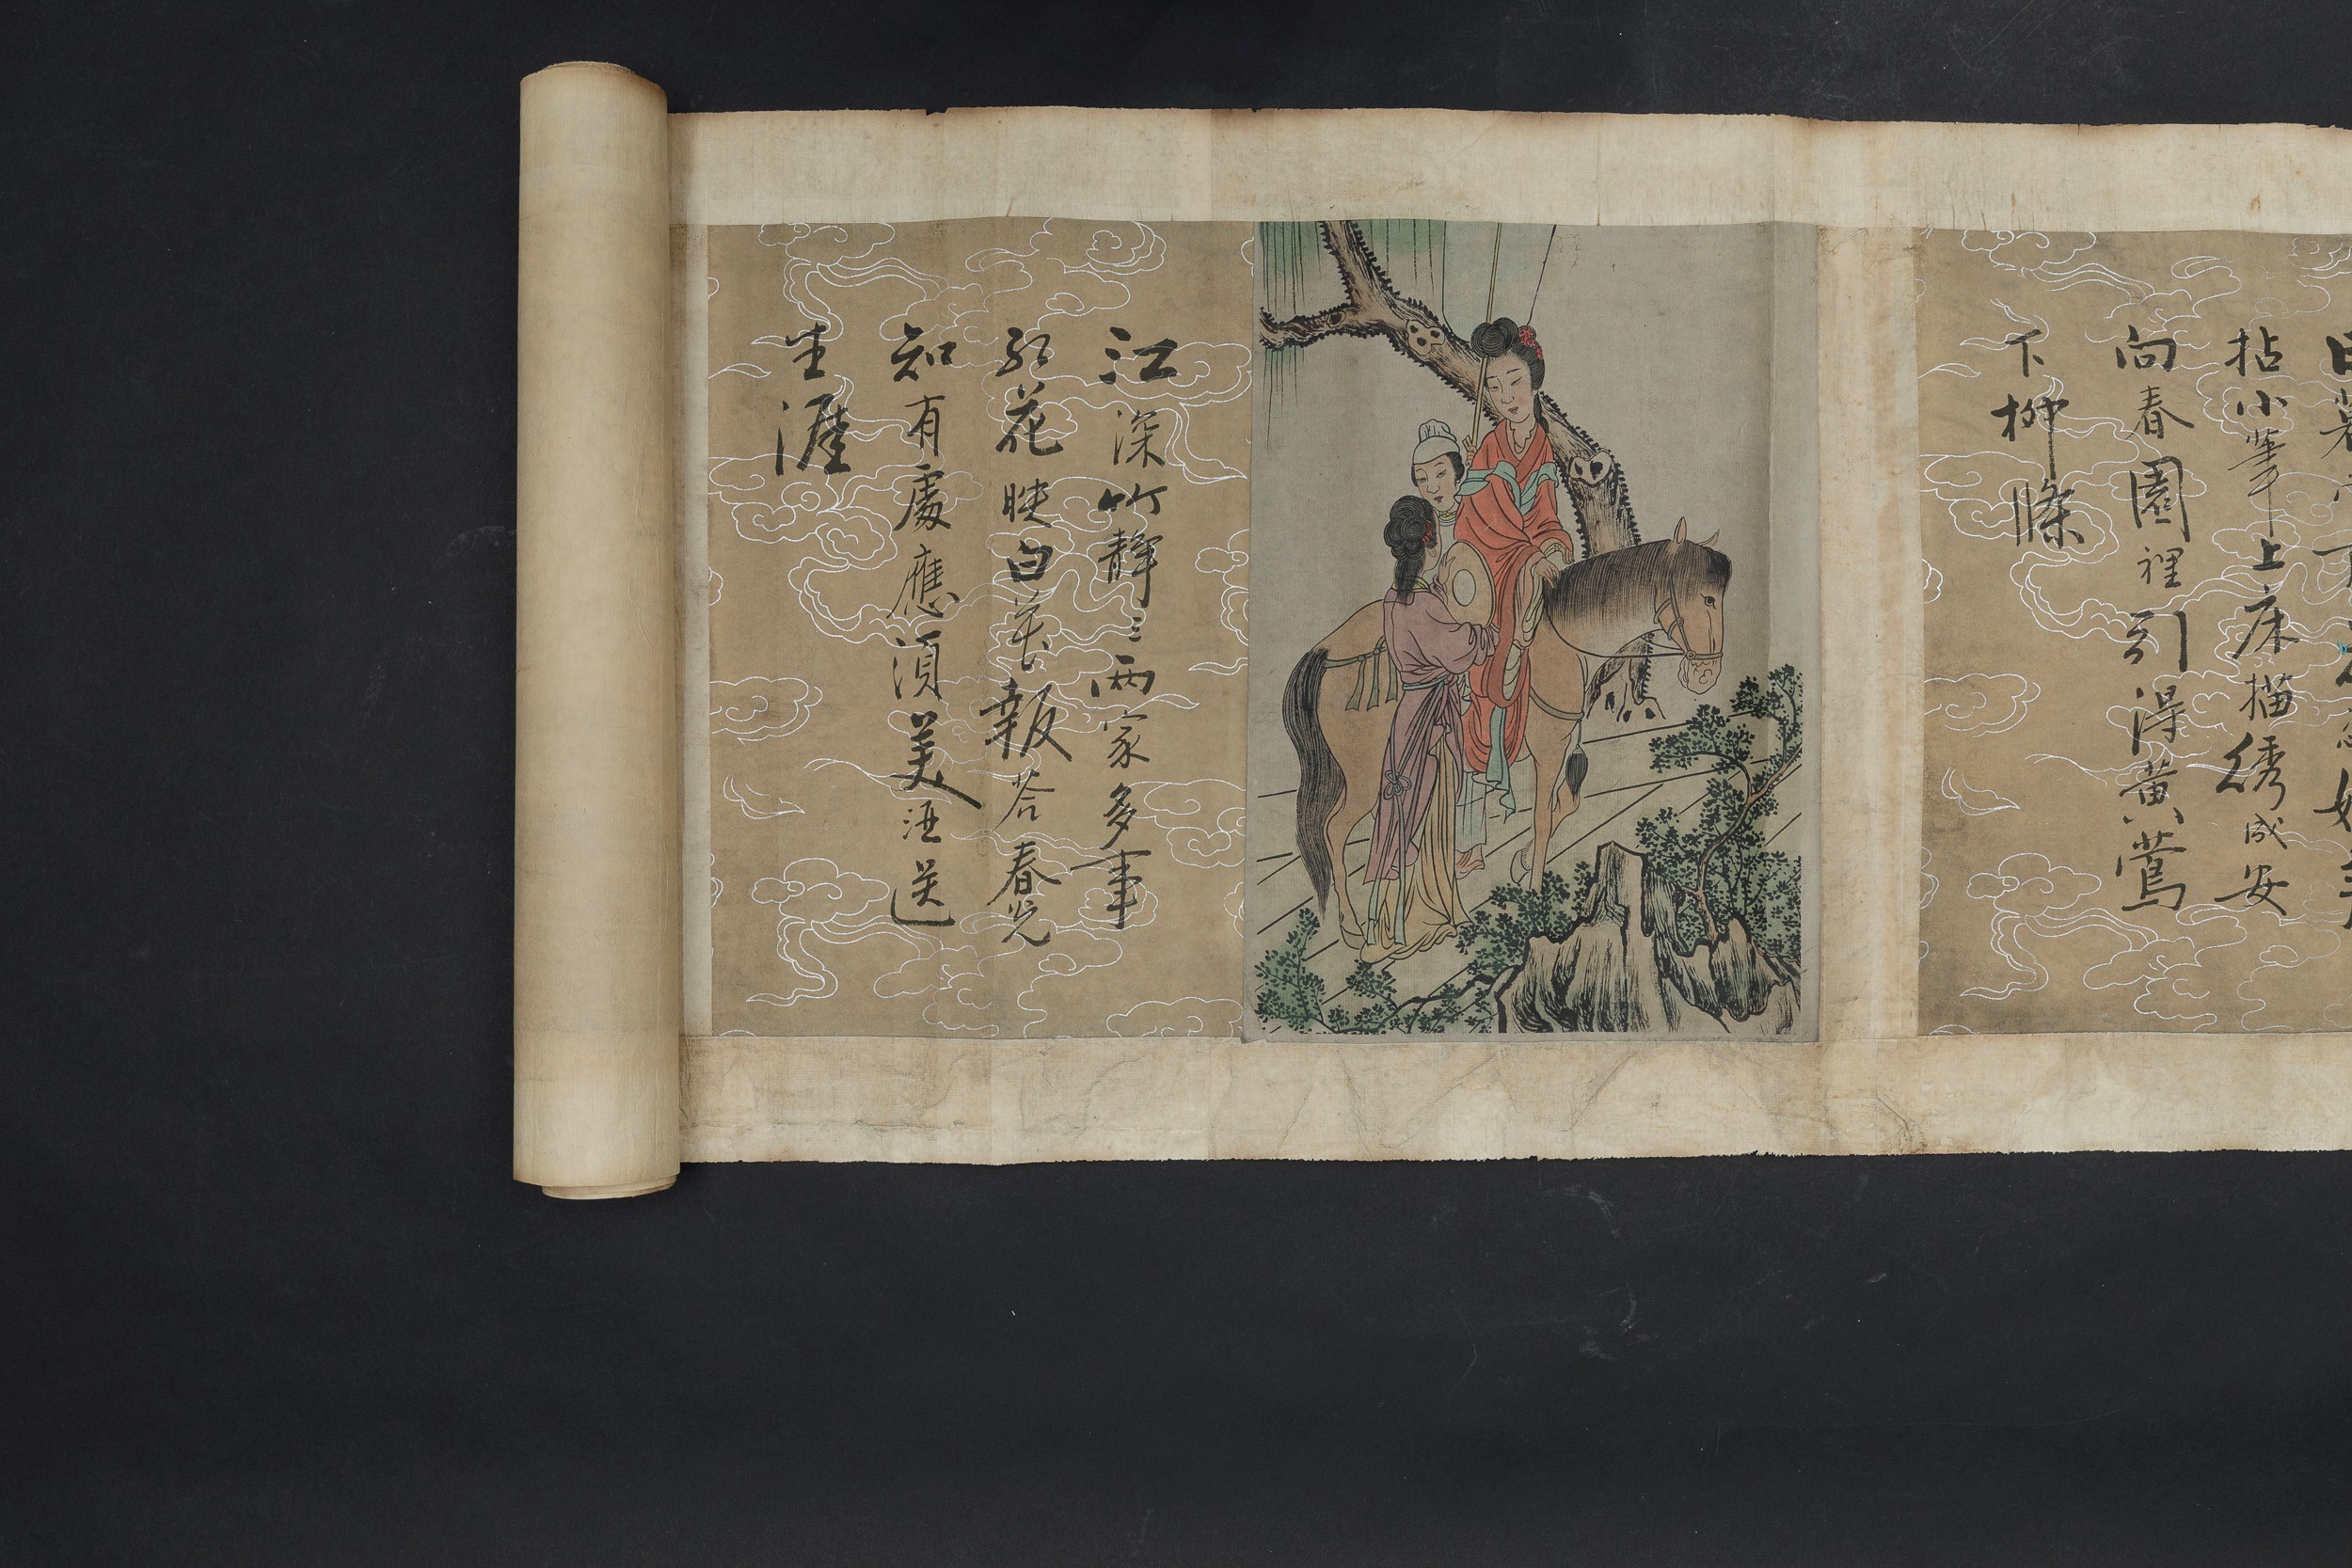 拈小筆上床描綉成安
向春園裡引得黃鶯
下柳條
江深竹靜三兩家多事
紅花映白花報荅春光
知有處應須美酒送
生涯